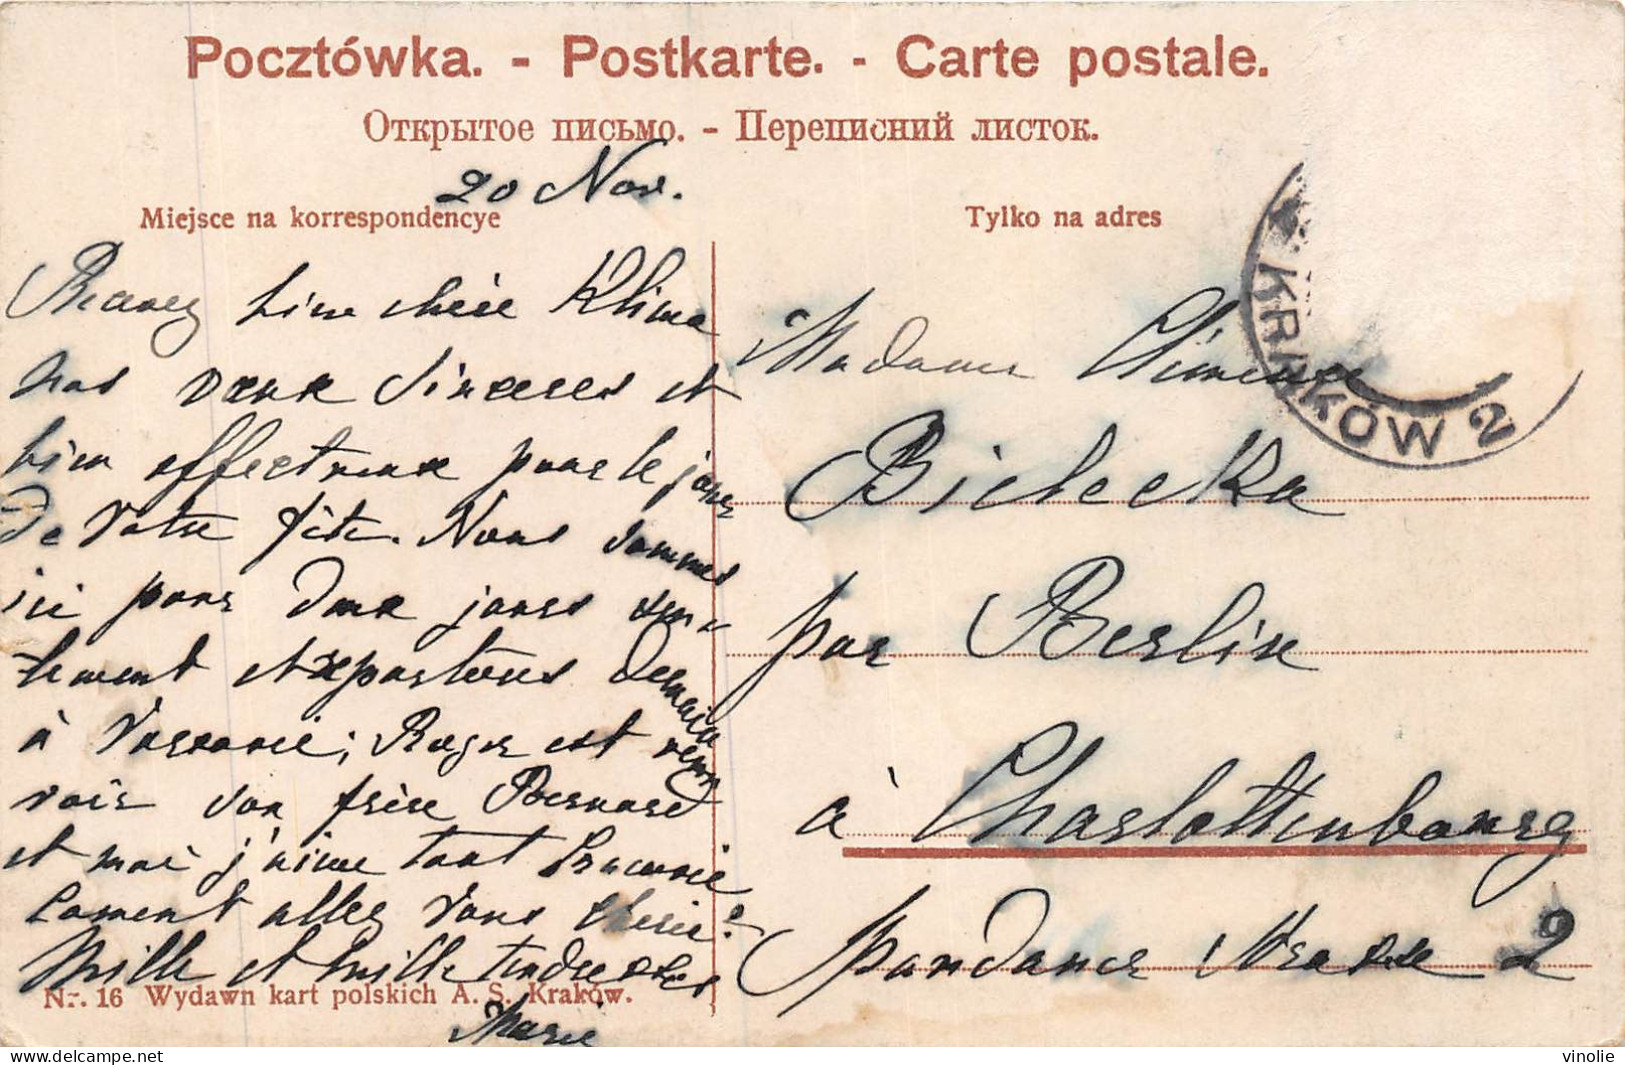 Pocztówka. - Postkarte. - Carte postale.
Открытое письмо. - Переписний листок.
20 Nov.
Miejsce na korrespondencye
Tylko na adres
Recevez bien chère Klima
nos vœux sincères et
bien affectueux pour le jour
de votre fête. Nous sommes
ici pour deux jours seu-
lement et repartons demain
à Varsovie; Roger est venu
voir son frère Bernard
et moi j'aime tant Cracovie
Comment allez vous chérie?
Mille et mille tendresses
Marie
Madame Clémence
Bielecka
par Berlin
à Charlottenbourg
Spandauer strasse 2
KRAKÓW 2
Nr. 16 Wydawn kart polskich A. S. Kraków.
delcampe.net
vinolie